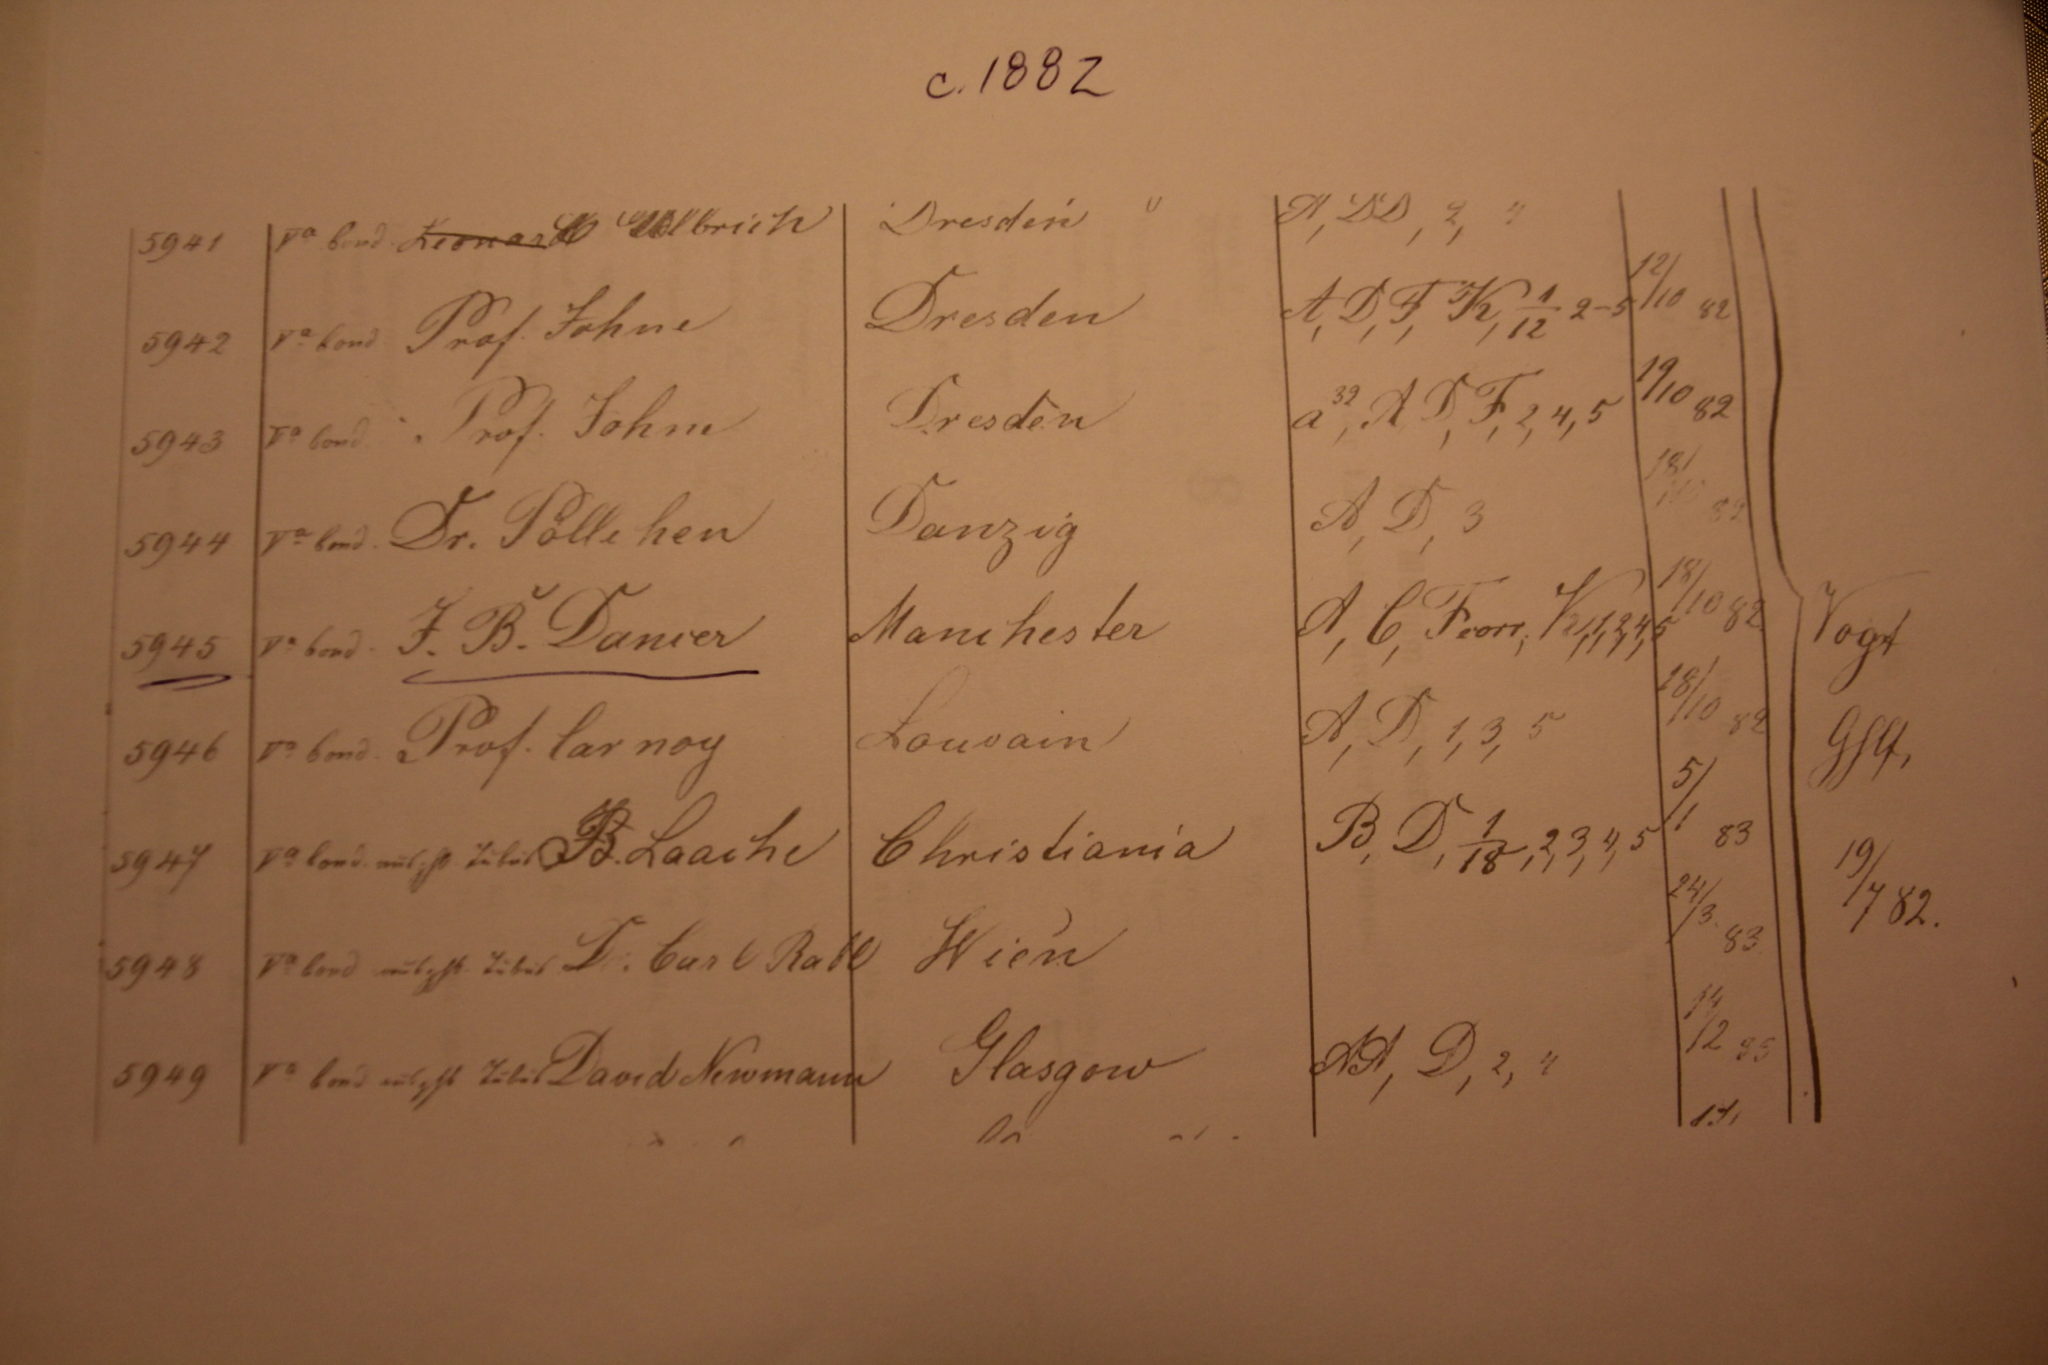 c. 1882
5941 Va bond. Ullbrich Dresden " A, DD, 2, 4
5942 Va bond Prof. Johne Dresden A, D, F, K2, 1/12 2-5 12/10 82
5943 Va bond Prof. Johne Dresden a32, A, D, F, 2, 4, 5 19/10 82
5944 Va bond. Dr. Pöllchen Danzig A, D, 3 18/10 82
5945 Va bond. J. B. Dancer Manchester A, C, Fcorr, 1, 2, 4, 5 18/10 82 Vogt
5946 Va bond. Prof. Carnoy Louvain A, D, 1, 3, 5 28/10 82
5947 Va bond. Tubus B. Laache Christiania B, D, 1/18, 2, 3, 4, 5 5/1 83 19/7 82.
5948 Va bond Tubus D. Carl Rabl Wien 24/3 83
5949 Va bond Tubus David Newmann Glasgow AA, D, 2, 4 14/12